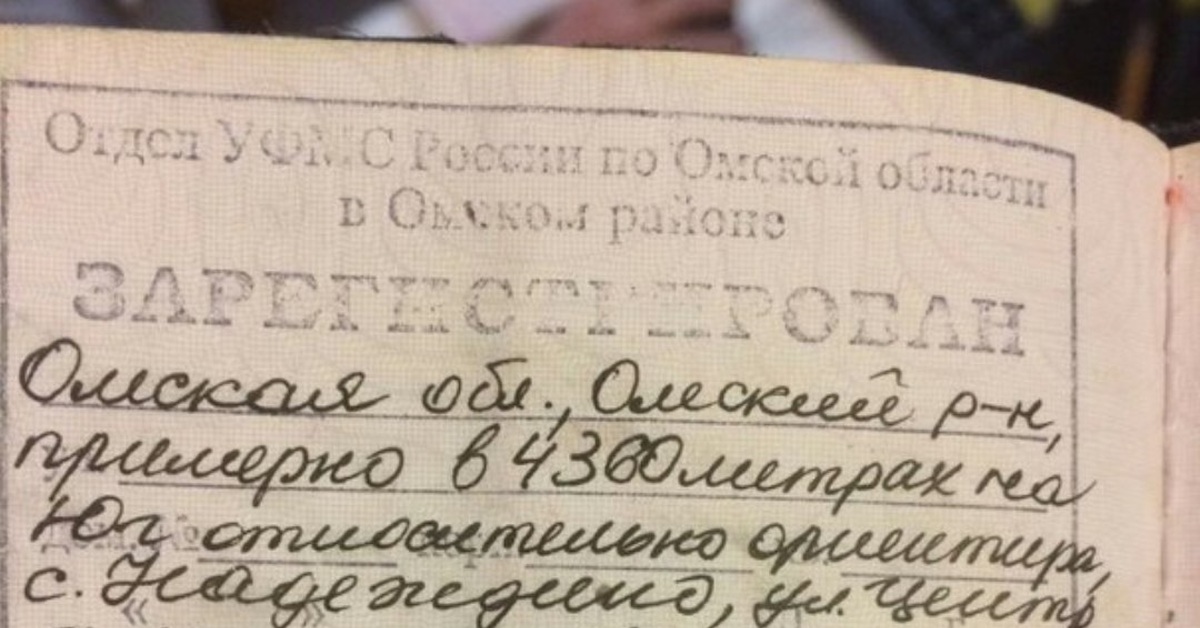 Отдел УФМС России по Омской области
в Омском районе
ЗАРЕГИСТРИРОВАН
Омская обл., Омский р-н,
примерно в 4360 метрах на
Юг относительно ориентира,
с. Надеждино, ул. Центр